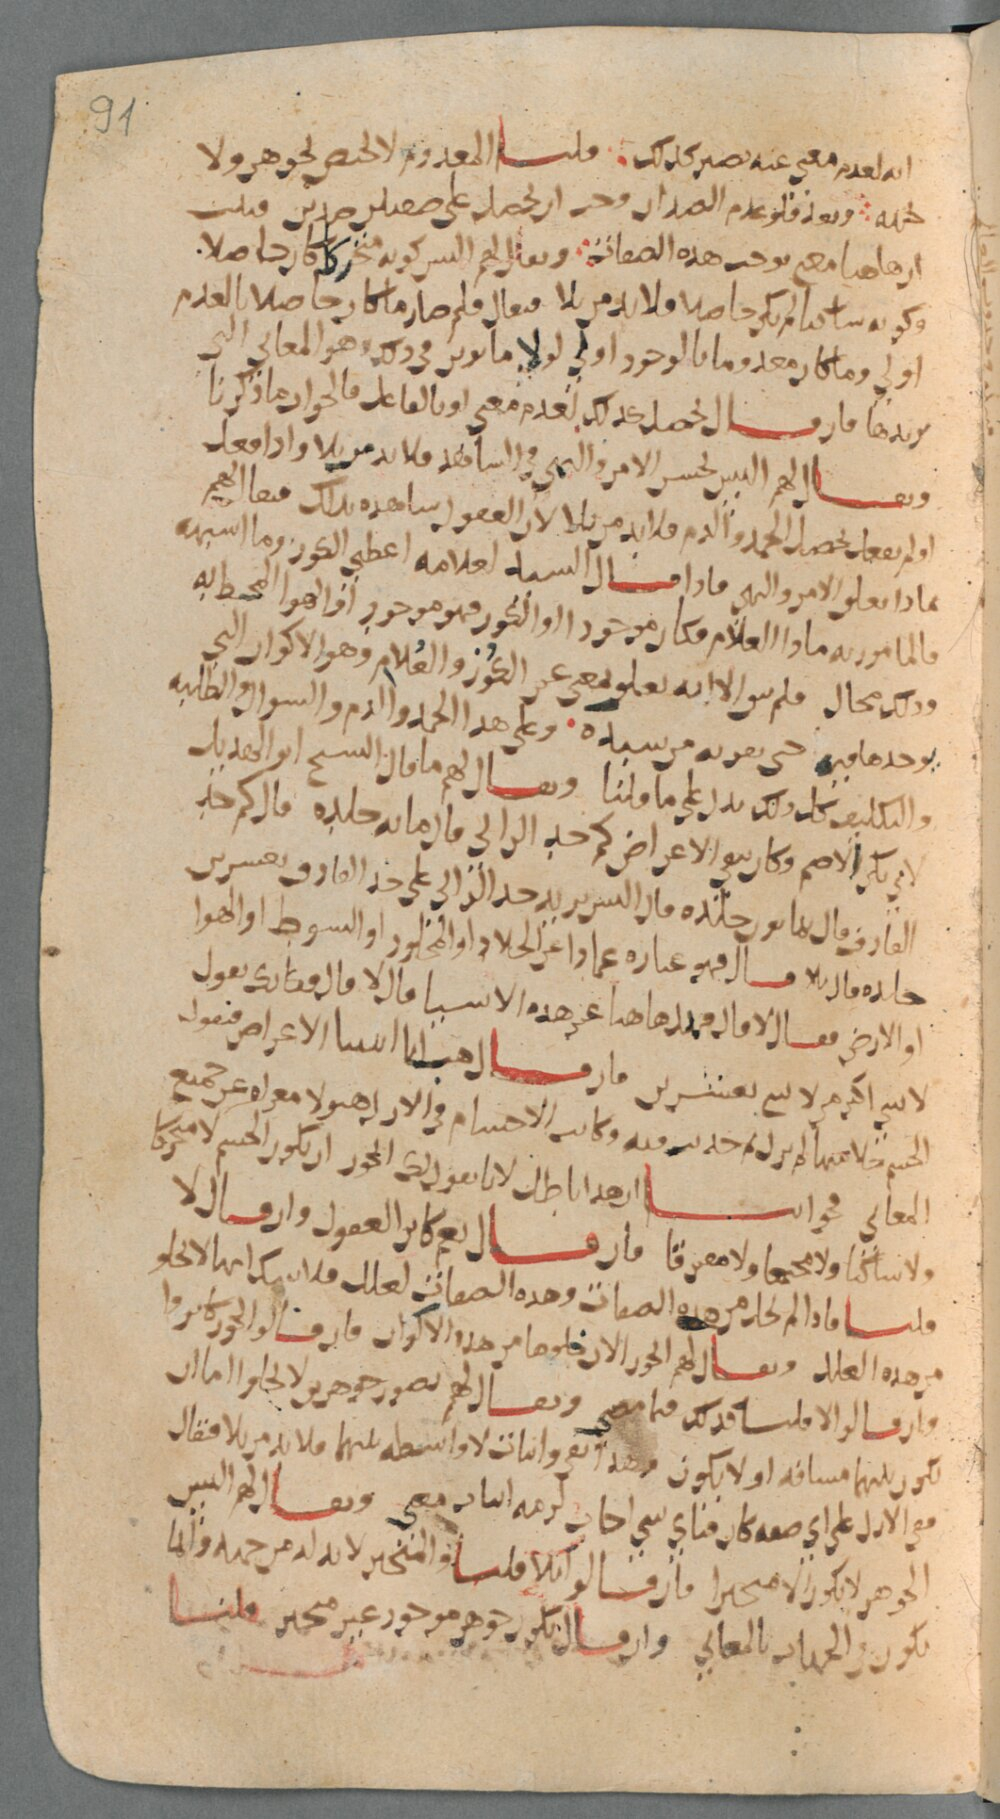 91
انه لعدم معنى عنه يصير كذلك قلنا المعدوم لا يختص بجوهر ولا
بجهة وبعد فلو عدم الضدان وجب ان يحصل على صفتين ضدين فثبت
ان هاهنا معنى يوجب هذه الصفات ويقال لهم اليس كونه متحركا كان حاصلا
وكونه ساكنا لم يكن حاصلا فلا بد من بلا فيقال فلم صار ما كان حاصلا بالعدم
اولى وما كان معدوما بالوجود اولى لولا ما يوثر في ذلك وهو المعاني التي
نريدها فان قال يحصل كذلك لعدم معنى او بالفاعل فالجواب ما ذكرنا
ويقال لهم اليس يحسن الامر والنهي في الشاهد فلا بد من بلا واذا فعل
او لم يفعل يحصل الحمد والذم فلا بد من بلا لان العقول شاهدة بذلك فيقال لهم
بماذا تعلق الامر والنهي فاذا قال السيد لغلامه اعطني الكوز وما اشبهه
فالمامور به ماذا الغلام فكان موجودا او الكوز فهو موجود او الهوا المحيط به
وذلك محال فلم يبق الا انه تعلق بمعنى غير الكوز والغلام وهو الاكوان التي
يوجدها فيه حتى يقربه من سيده وعلى هذا الحمد والذم والسوال والطلبه
والتكليف كل ذلك يدل على ما قلنا ويقال لهم ما قال الشيخ ابو الهذيل
لابي بكر الاصم وكان ينفي الاعراض كم حد الزاني قال مائة جلدة قال كم حد
القاذف قال ثمانون جلدة قال اليس يزيد حد الزاني على حد القاذف بعشرين
جلدة قال بلا قال فهو عبارة عماذا عن الجلاد او المجلود او السوط او الهوا
او الارض فقال لا قال فهل هاهنا غير هذه الاشيا قال لا قال فكانك تقول
لا شي اكثر من لا شي بعشرين فان قال هب انا اثبتنا الاعراض فنقول
الجسم خلا عنها لم يزل ثم حدثت فيه وكانت الاجسام في الازل هيولا معراه عن جميع
المعاني فجوابنا ان هذا باطل لانا نقول لك ايجوز ان يكون الجسم لا متحركا
ولا ساكنا ولا مجتمعا ولا مفترقا فان قال نعم كابر العقول وان قال لا
قلنا فاذا لم يخل من هذه الصفات وهذه الصفات لعلل فلا بد انها لا تخلو
من هذه العلل ويقال لهم ايجوز الان خلوها من هذه الاكوان فان قالوا يجوز كابروا
وان قالوا لا قلنا فكذلك فيما مضى ويقال لهم تصور جوهرين لا يخلو اما ان
يكون بينهما مسافة او لا يكون وهذا نفي واثبات لا واسطة بينهما فلا بد من بلا فقال
ففي الازل على اي صفه كان فباي شي اجاب لزمه اثبات معنى ويقال لهم اليس
الجوهر لا يكون الا متحيزا فان قالوا بلا قلنا فالمتحيز لا بد له من جهه وانما
يكون في الجهات بالمعاني وان قال يكون جوهر موجود غير متحيز قلنا